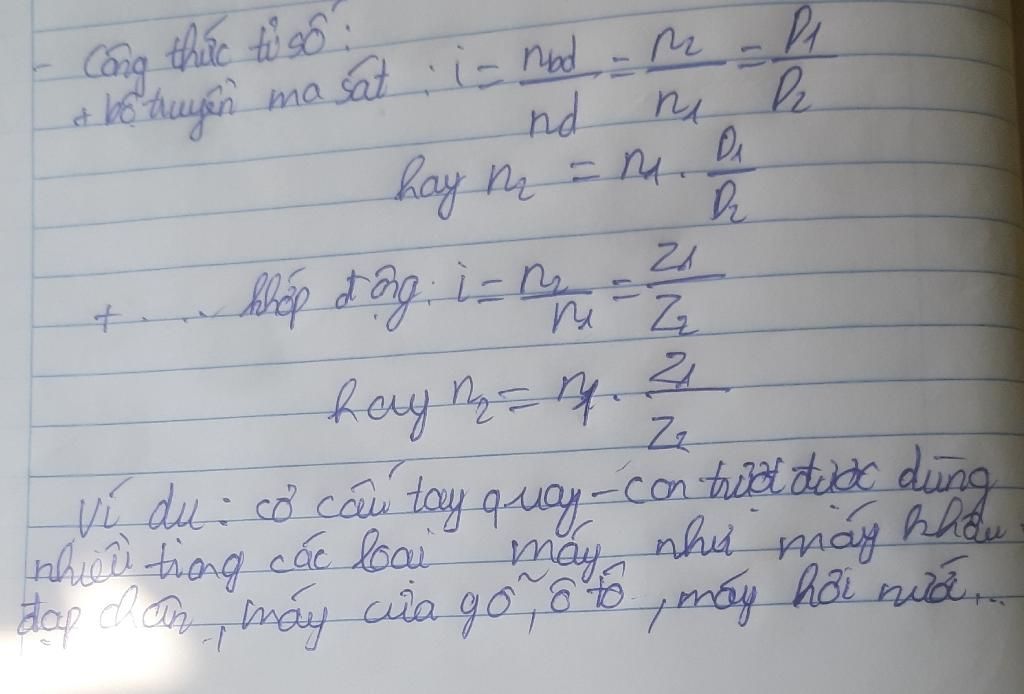 - Công thức tỉ số:
+ bộ truyền ma sát : i = nbd/nd = n2/n1 = D1/D2
hay n2 = n1 . D1/D2
+ .... khớp động: i = n2/n1 = Z1/Z2
hay n2 = n1 . Z1/Z2
Ví dụ: cơ cấu tay quay - con trượt được dùng
nhiều trong các loại máy như máy khâu
đạp chân, máy cưa gỗ, ô tô, máy hơi nước...